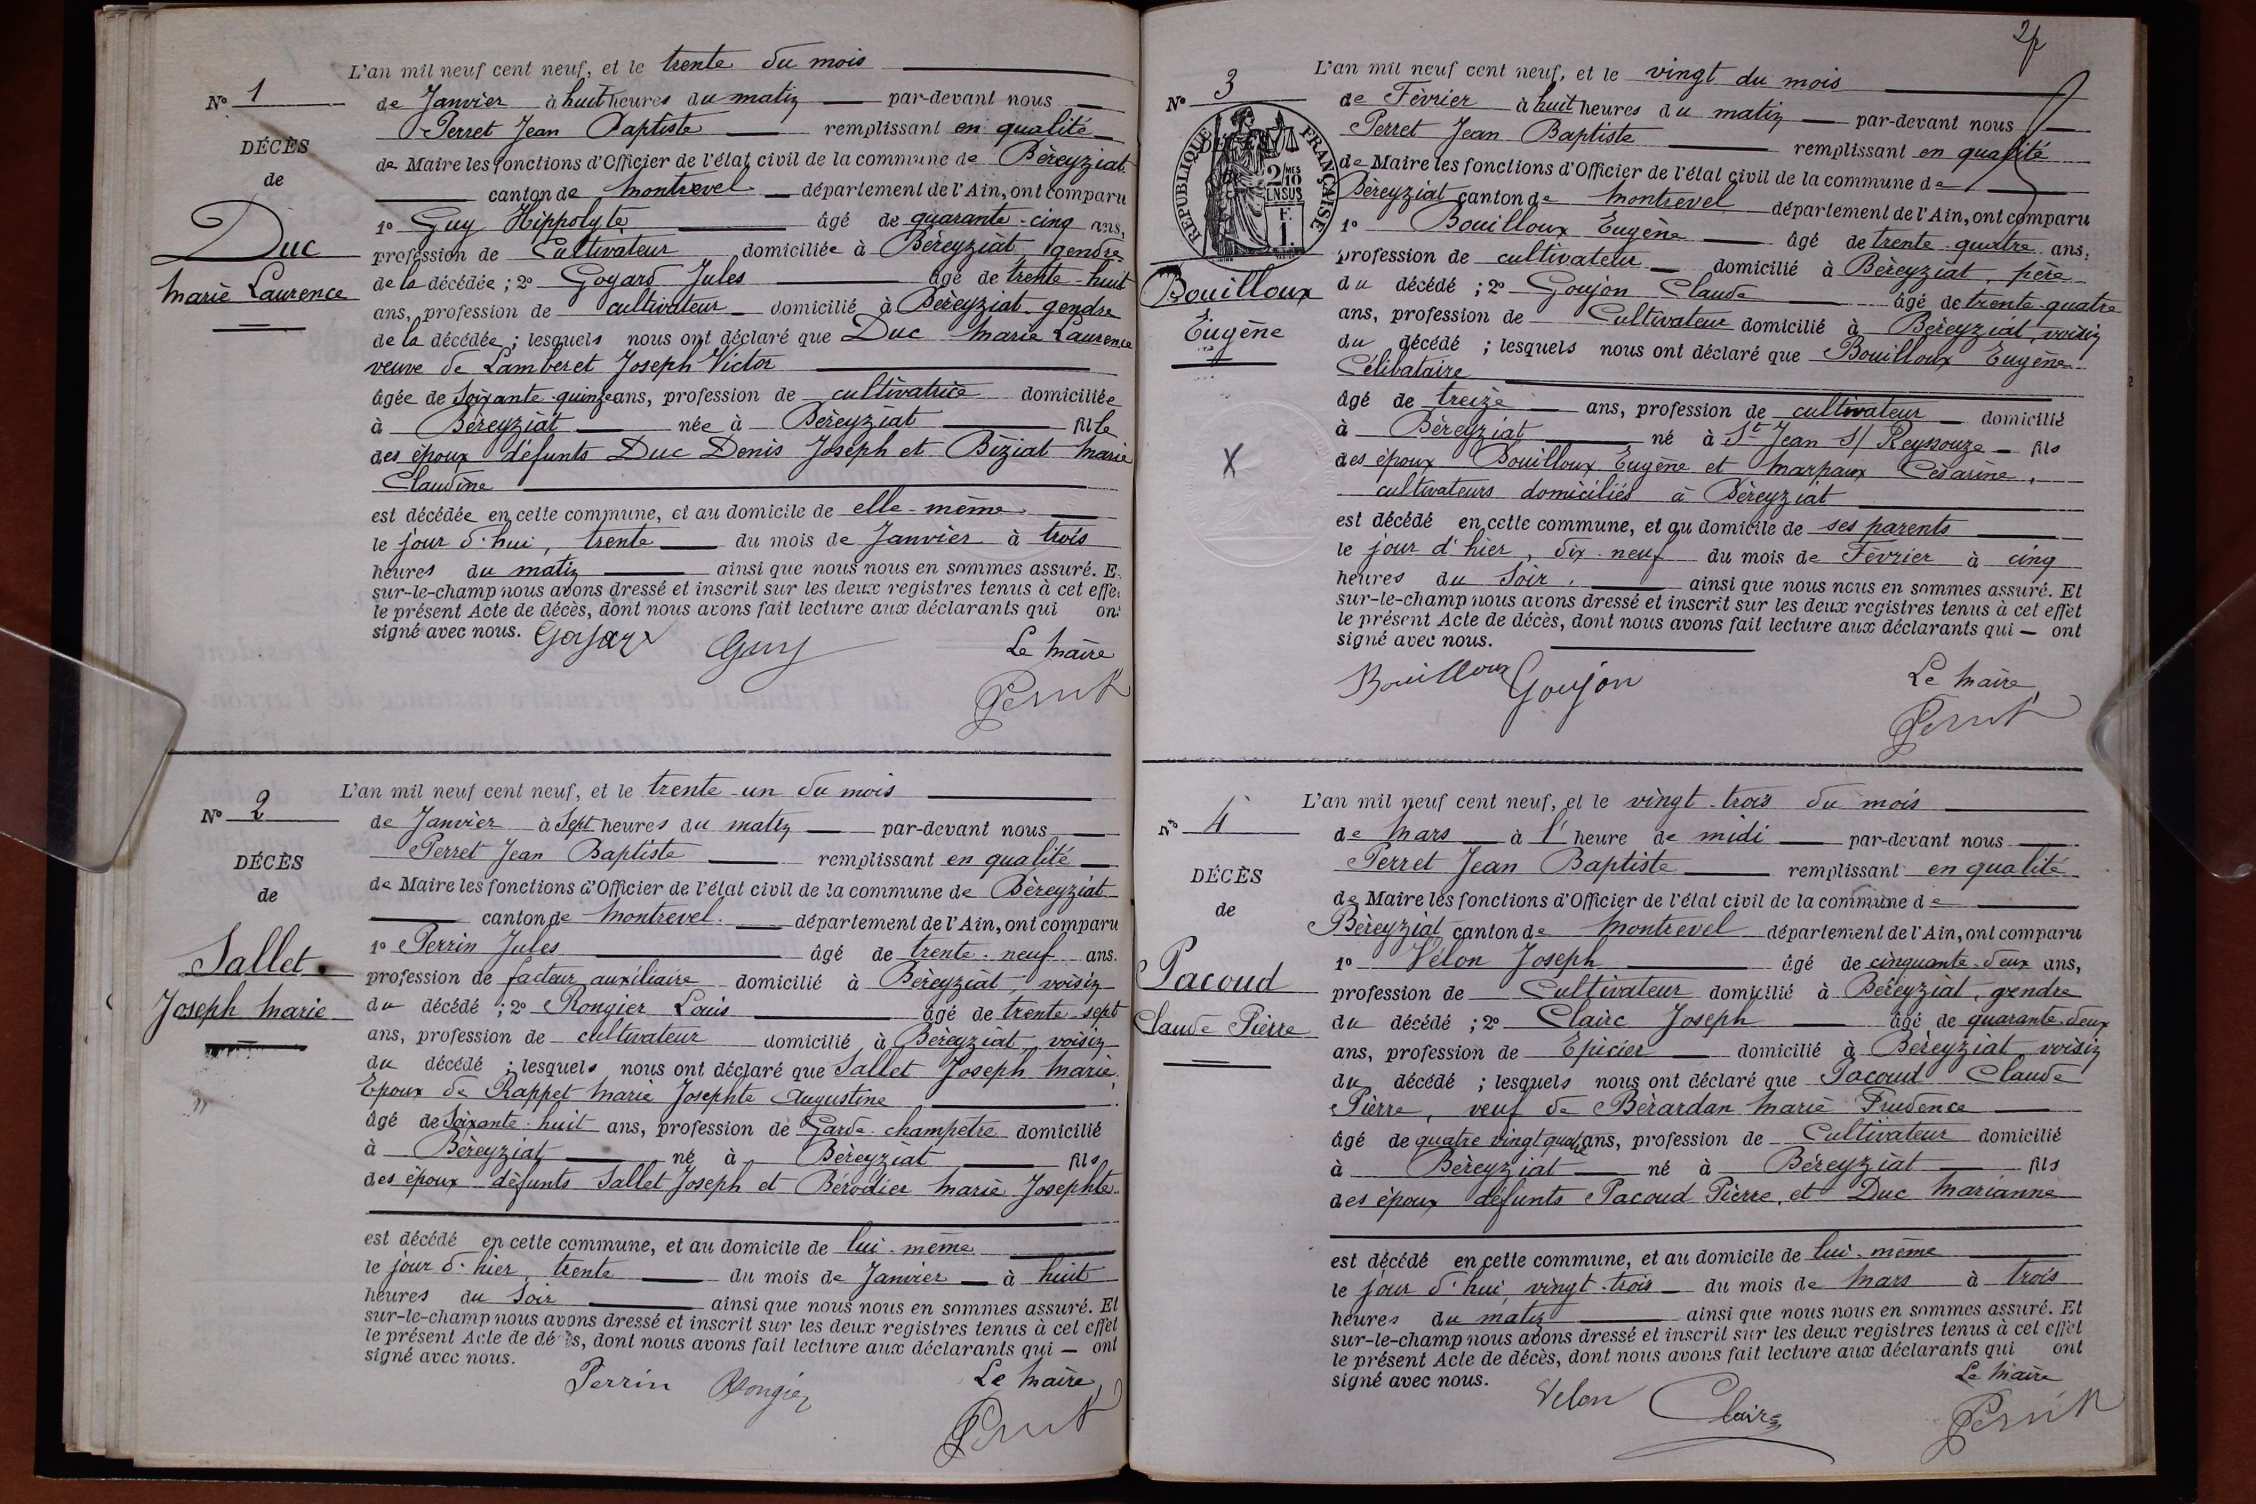 L'an mil neuf cent neuf, et le trente du mois
N° 1
de Janvier à huit heures du matin par-devant nous
Perret Jean Baptiste remplissant en qualité
DÉCÈS
de Maire les fonctions d'Officier de l'état civil de la commune de Béreyziat
de
canton de Montrevel département de l'Ain, ont comparu
1° Guy Hippolyte âgé de quarante-cinq ans,
Duc
profession de Cultivateur domiciliée à Béreyziat, gendre
de la décédée ; 2° Goyard Jules âgé de trente-huit
Marie Laurence
ans, profession de cultivateur domicilié à Béreyziat gendre
de la décédée ; lesquels nous ont déclaré que Duc Marie Laurence
veuve de Lamberet Joseph Victor
âgée de soixante-quinze ans, profession de cultivatrice domiciliée
à Béreyziat née à Béreyziat fille
des époux défunts Duc Denis Joseph et Biziat Marie
Claudine
est décédée en cette commune, et au domicile de elle-même
le jour d'hui, trente du mois de Janvier à trois
heures du matin ainsi que nous nous en sommes assuré. E
sur-le-champ nous avons dressé et inscrit sur les deux registres tenus à cet effe
le présent Acte de décès, dont nous avons fait lecture aux déclarants qui on
signé avec nous. Goyard Guy Le Maire
Perret
L'an mil neuf cent neuf, et le trente-un du mois
N° 2
de Janvier à sept heures du matin par-devant nous
Perret Jean Baptiste remplissant en qualité
DÉCÈS
de Maire les fonctions d'Officier de l'état civil de la commune de Béreyziat
de
canton de Montrevel département de l'Ain, ont comparu
1° Perrin Jules âgé de trente-neuf ans.
Sallet
profession de facteur auxiliaire domicilié à Béreyziat, voisin
Joseph Marie
du décédé ; 2° Rongier Louis âgé de trente-sept
ans, profession de cultivateur domicilié à Béreyziat, voisin
du décédé ; lesquels nous ont déclaré que Sallet Joseph Marie,
Epoux de Rappet Marie Josephte Augustine
âgé de soixante-huit ans, profession de Garde-champêtre domicilié
à Béreyziat né à Béreyziat fils
des époux défunts Sallet Joseph et Bérodier Marie Josephte
est décédé en cette commune, et au domicile de lui-même
le jour d'hier, trente du mois de Janvier à huit
heures du soir ainsi que nous nous en sommes assuré. Et
sur-le-champ nous avons dressé et inscrit sur les deux registres tenus à cet effet
le présent Acte de décès, dont nous avons fait lecture aux déclarants qui — ont
signé avec nous.
Perrin Rongier Le Maire,
Perret
2
L'an mil neuf cent neuf, et le vingt du mois
N° 3
de Février à huit heures du matin par-devant nous
Perret Jean Baptiste remplissant en qualité
RÉPUBLIQUE FRANÇAISE
2 MES 10 EN SUS
F. 1.
de Maire les fonctions d'Officier de l'état civil de la commune de
Béreyziat canton de Montrevel département de l'Ain, ont comparu
1° Bouilloux Eugène âgé de trente-quatre ans,
profession de cultivateur domicilié à Béreyziat, père
Bouilloux
du décédé ; 2° Goujon Claude âgé de trente-quatre
Eugène
ans, profession de Cultivateur domicilié à Béreyziat, voisin
du décédé ; lesquels nous ont déclaré que Bouilloux Eugène
Célibataire
âgé de treize ans, profession de cultivateur domicilié
à Béreyziat né à St Jean S/ Reyssouze fils
X
des époux Bouilloux Eugène et Marpaux Césarine,
cultivateurs domiciliés à Béreyziat
est décédé en cette commune, et au domicile de ses parents
le jour d'hier, dix-neuf du mois de Février à cinq
heures du soir. ainsi que nous nous en sommes assuré. Et
sur-le-champ nous avons dressé et inscrit sur les deux registres tenus à cet effet
le présent Acte de décès, dont nous avons fait lecture aux déclarants qui — ont
signé avec nous.
Bouilloux Goujon Le Maire,
Perret
L'an mil neuf cent neuf, et le vingt-trois du mois
N° 4
de Mars à l' heure de midi par-devant nous
Perret Jean Baptiste remplissant en qualité
DÉCÈS
de Maire les fonctions d'Officier de l'état civil de la commune de
de
Béreyziat canton de Montrevel département de l'Ain, ont comparu
1° Vélon Joseph âgé de cinquante-deux ans,
Pacoud
profession de Cultivateur domicilié à Béreyziat, gendre
Claude Pierre
du décédé ; 2° Clairc Joseph âgé de quarante-deux
ans, profession de Epicier domicilié à Béreyziat voisin
du décédé ; lesquels nous ont déclaré que Pacoud Claude
Pierre, veuf de Bérardan Marie Prudence
âgé de quatre vingt quatre ans, profession de Cultivateur domicilié
à Béreyziat né à Béreyziat fils
des époux défunts Pacoud Pierre, et Duc Marianne
est décédé en cette commune, et au domicile de lui-même
le jour d'hui, vingt-trois du mois de Mars à trois
heures du matin ainsi que nous nous en sommes assuré. Et
sur-le-champ nous avons dressé et inscrit sur les deux registres tenus à cet effet
le présent Acte de décès, dont nous avons fait lecture aux déclarants qui ont
signé avec nous. Le Maire
Velon Clairc Perret